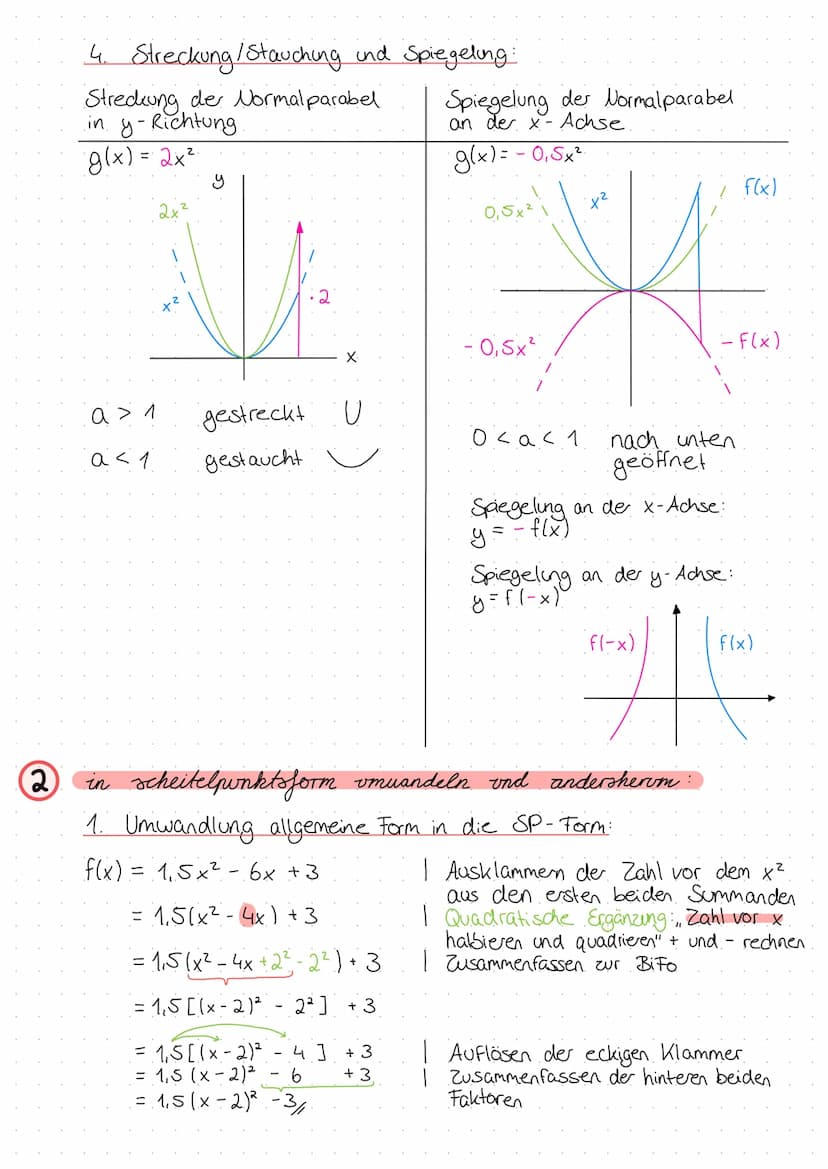 4. Streckung/Stauchung und Spiegelung:
Streckung der Normalparabel
in y-Richtung
g(x) = 2x²
y
2x²
x²
· 2
x
a > 1 gestreckt
a < 1 gestaucht
Spiegelung der Normalparabel
an der x-Achse
g(x) = - 0,5x²
f(x)
x²
0,5x²
- 0,5x²
- f(x)
0 < a < 1 nach unten
geöffnet
Spiegelung an der x-Achse:
y = - f(x)
Spiegelung an der y-Achse:
y = f(-x)
f(-x)
f(x)
2 in scheitelpunktsform umwandeln und andersherum:
1. Umwandlung allgemeine Form in die SP-Form:
f(x) = 1,5x² - 6x + 3 | Ausklammern der Zahl vor dem x²
aus den ersten beiden Summanden
= 1,5(x² - 4x) + 3 | Quadratische Ergänzung: „Zahl vor x
halbieren und quadrieren" + und - rechnen
= 1,5(x² - 4x + 2² - 2²) + 3 | Zusammenfassen zur BiFo
= 1,5[(x-2)² - 2²] + 3
= 1,5[(x-2)² - 4] + 3 | Auflösen der eckigen Klammer
= 1,5(x-2)² - 6 + 3 | Zusammenfassen der hinteren beiden
= 1,5(x-2)² - 3// Faktoren